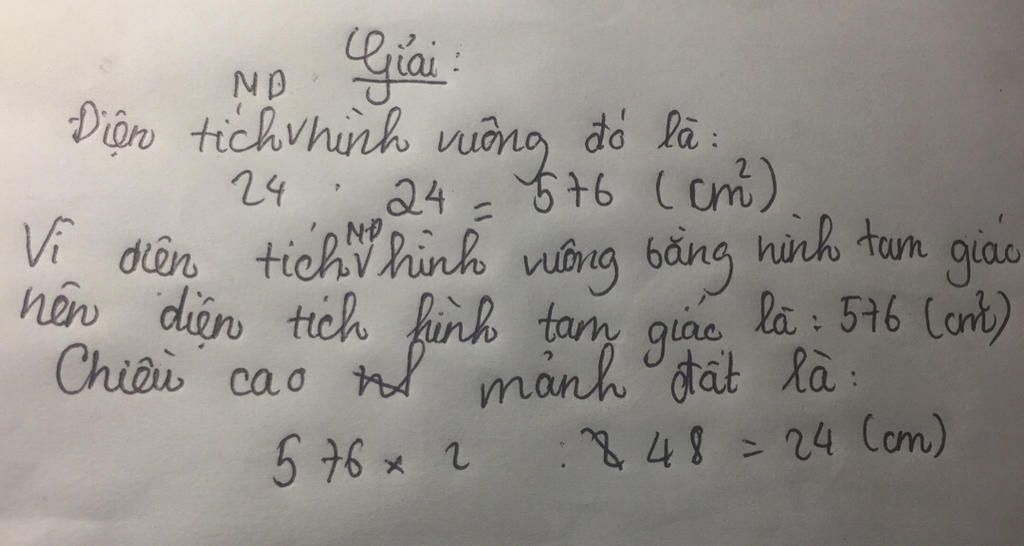 Giải:
Diện tích MĐ hình vuông đó là:
24 . 24 = 576 (cm²)
Vì diên tích MĐ hình vuông bằng hình tam giác
nên diện tích hình tam giác là: 576 (cm²)
Chiều cao mảnh đất là:
576 x 2 : 48 = 24 (cm)